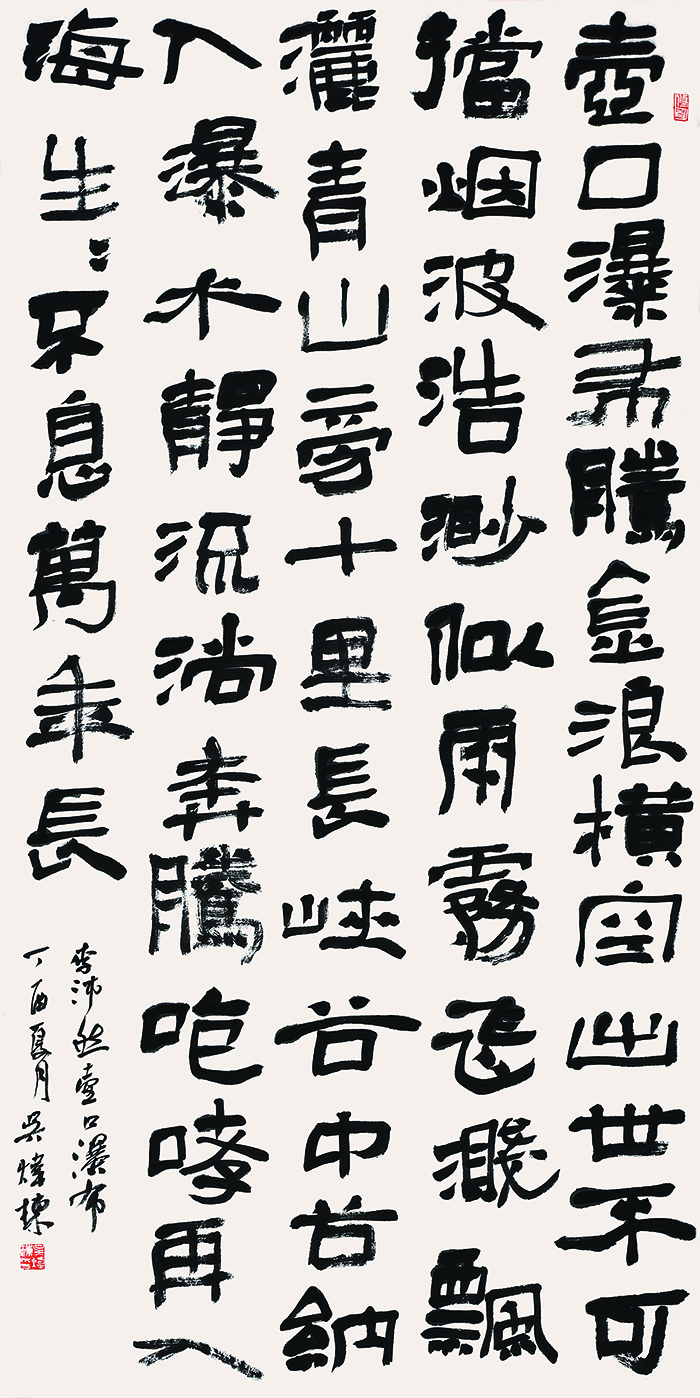 壺口瀑布騰金浪橫空出世不可
擋烟波浩渺似雨霧飛濺飄
灑青山旁十里長峽谷中谷納
入瀑水靜流淌奔騰咆哮再入
海生〻不息萬年長
李沛然壺口瀑布
丁酉夏月吳煒棟